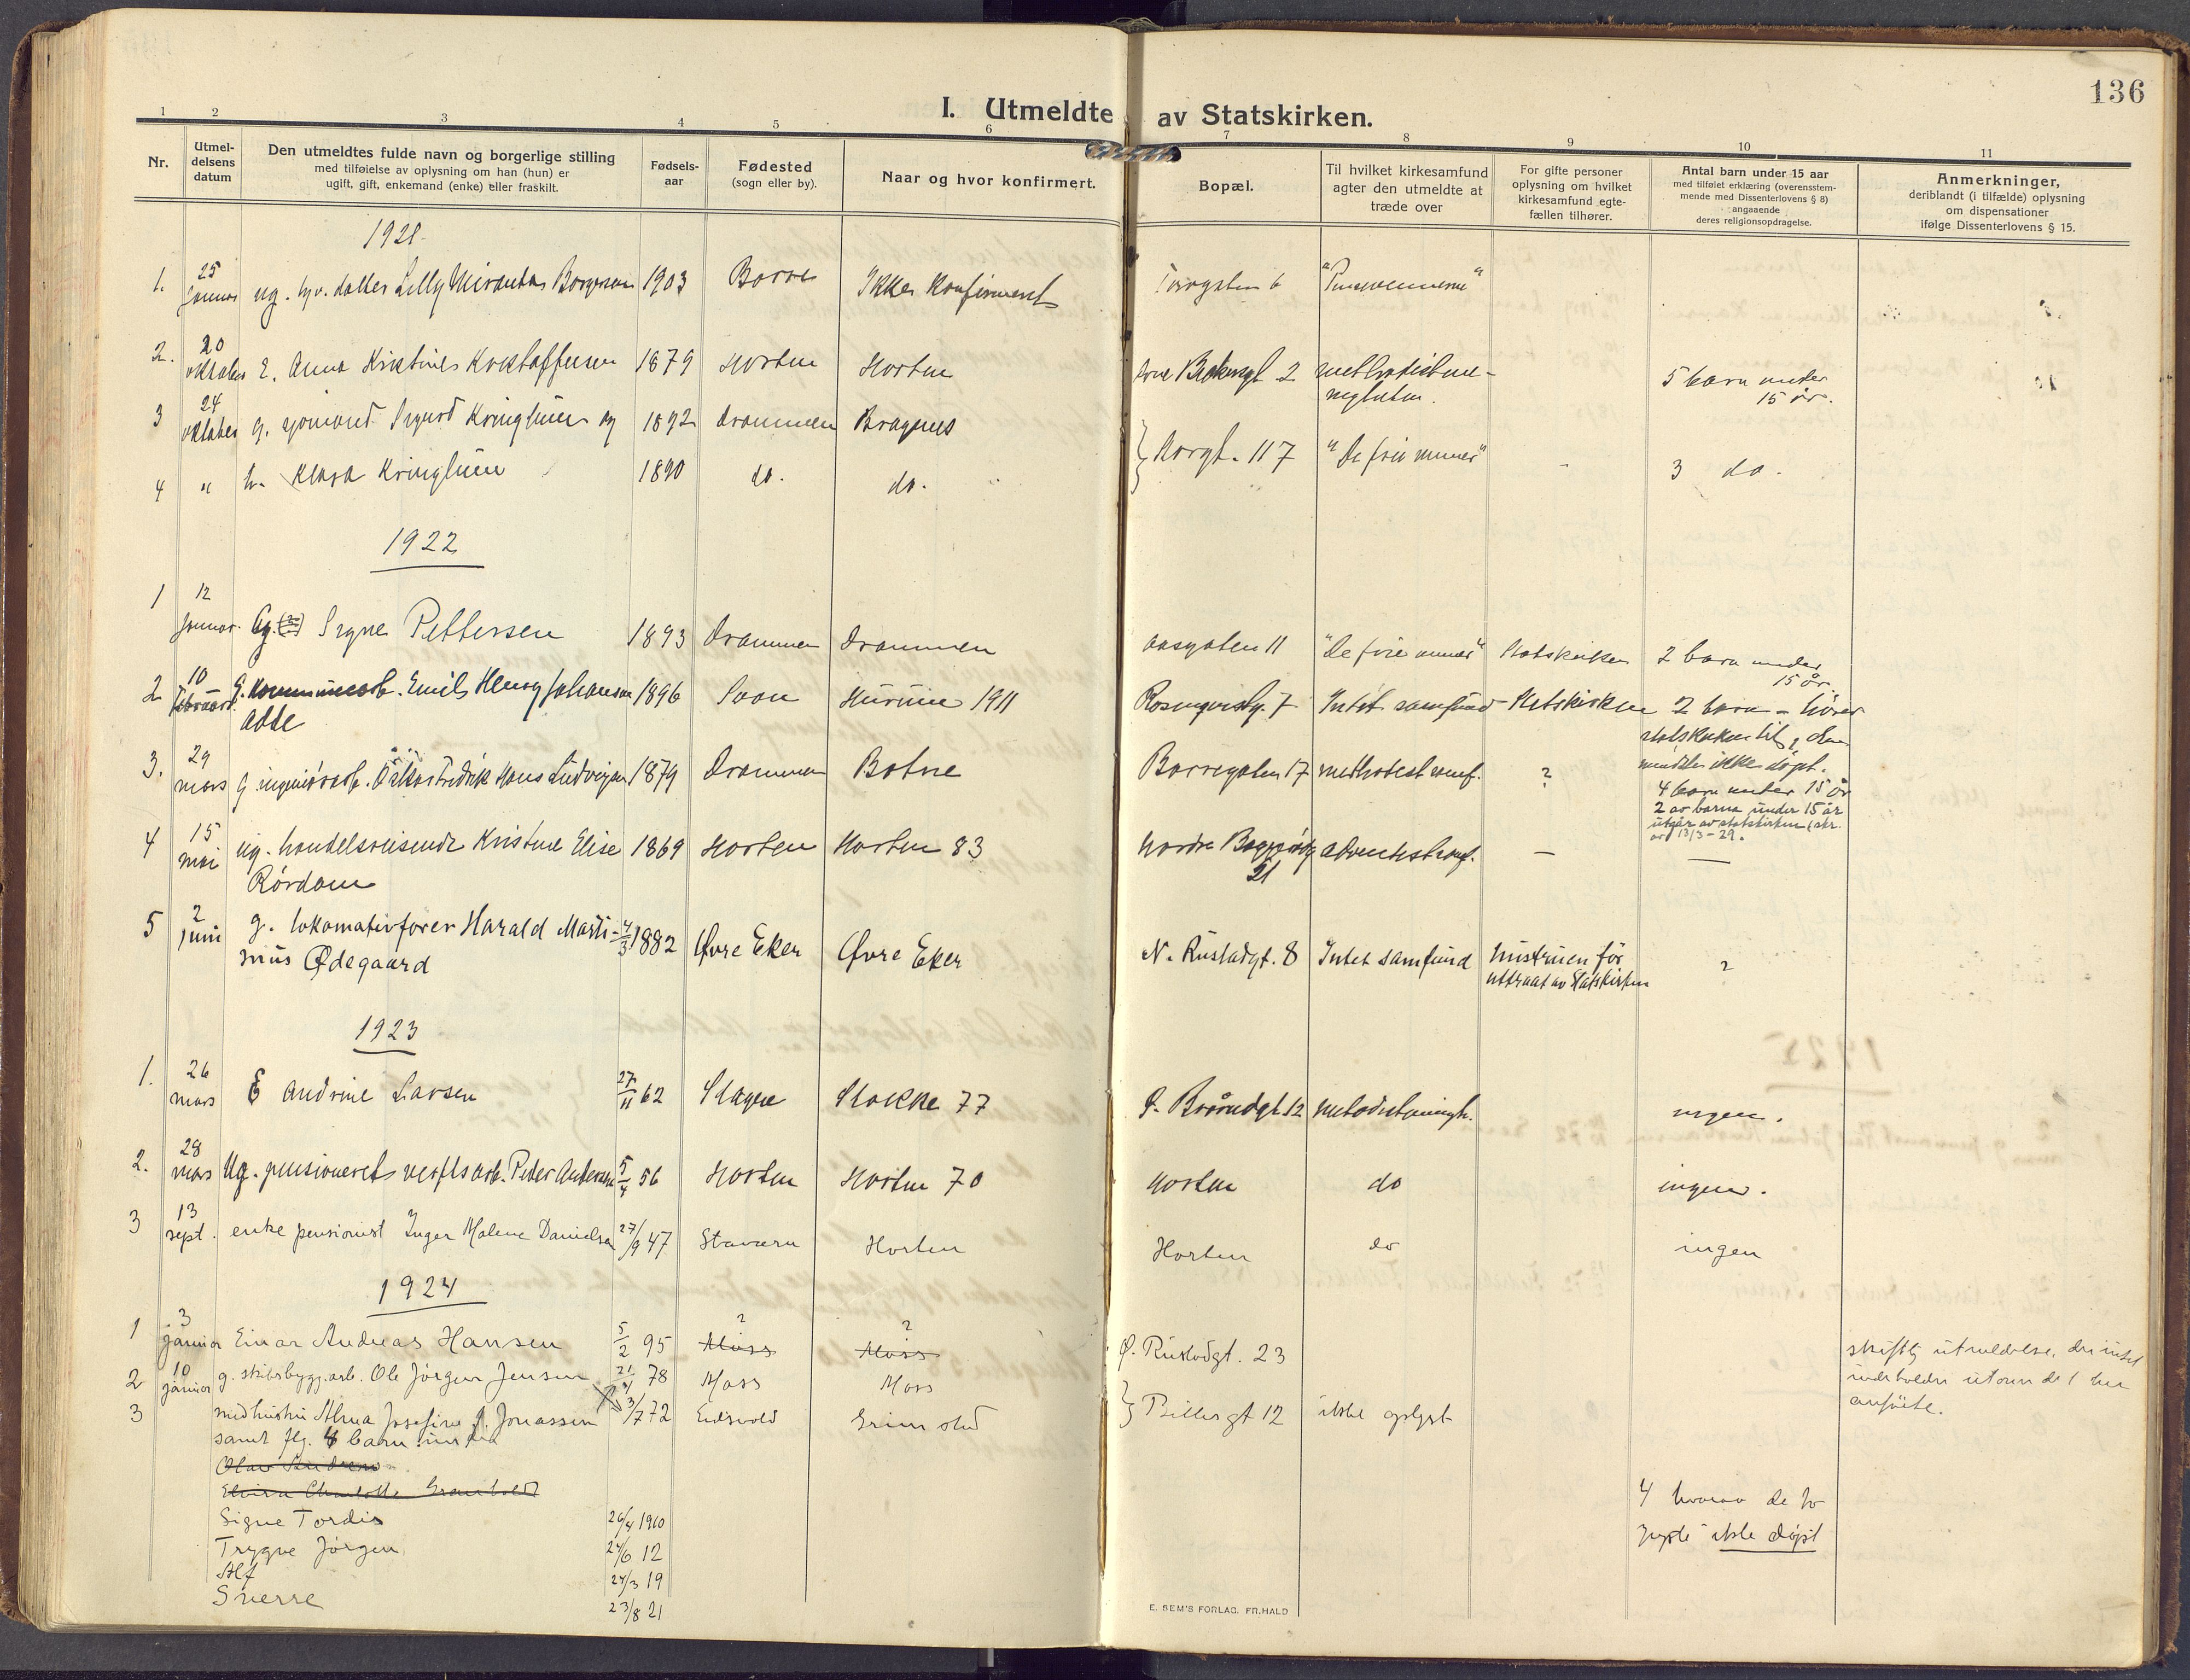 136
I. Utmeldte av Statskirken.
1 2 3 4 5 6 7 8 9 10 11
Nr.
Utmel-
delsens
datum
Den utmeldtes fulde navn og borgerlige stilling
med tilføielse av oplysning om han (hun) er
ugift, gift, enkemand (enke) eller fraskilt.
Fødsels-
aar
Fødested
(sogn eller by).
Naar og hvor konfirmert.
Bopæl.
Til hvilket kirkesamfund
agter den utmeldte at
træde over
For gifte personer
oplysning om hvilket
kirkesamfund egte-
fællen tilhører.
Antal barn under 15 aar
med tilføiet erklæring (overensstem-
mende med Dissenterlovens § 8)
angaaende
deres religionsopdragelse.
Anmerkninger,
deriblandt (i tilfælde) oplysning
om dispensationer
ifølge Dissenterlovens § 15.
1921.
1. 25 Januar ug. datter Lilly Borgersen 1903 Borre Ikke konfirmert 6 "Pinsevennerne"
2. 20 oktober E. Anna Kristine Kristoffersen 1879 Horten Horten 2 methodistme-
nigheten. 5 barn under
15 år.
3 24 oktober g. sjømand Sigurd og 1892 Drammen Bragenes
4 " h. Klara 1890 do. do. 117 "De frie venner" - 3 do.
1922
1 12 Januar Signe Pettersen 1893 Drammen Drammen 11 "De frie venner" Statskirken 2 barn under
15 år
2 10 Februar G. Emil Johansen 1896 Soon Hurum 1911 7 Intet samfund Statskirken 2 barn - hører
statskirken til, den
mindste ikke døpt.
3. 29 mars g Oskar Fredrik Hans Ludvigsen 1879 Drammen Botne Borregaten 17 methodistsamf. ?
4 barn under 15 år
2 av barna under 15 år
utgår av statskirken (skr.
av 13/3-29.
4 15 mai ug. handelsreisende Kristine Elise 1869 Horten Horten 83 Nordre 21 adventistsamf. — —
Rördam
5 2 juni g. lokomativfører Harald Marti- 4/3 1882 Øvre Eker Øvre Eker N. Rustadgt. 8 Intet samfund hustruen før ?
nius Ødegaard
uttraat av Statskirken
1923
1. 26 mars E Andrine Larsen 27/11 62 Slagen Stokke 77 12 ingen.
2. 28 mars Ug. pensioneret verftsarb. Peder Andersen 5/4 56 Horten Horten 70 Horten do ingen.
3 13 sept. enke pensionist Inger Malene Danielsen 27/9 47 Stavern Horten Horten do ingen
1924
1 3 januar Einar Andreas Hansen 5/2 95 ? Moss ? Moss Ø. Rustadgt. 23
skriftlig utmeldelse, der intet
indeholder utover de(t) her
anførte.
2 10 januar g. skibsbygg.arb. Ole Jørgen Jensen 78 Moss Moss
3 med hustru Alma Josefine f. Jonassen 3/7 72 Eidsvold Grimstad 12 ikke oplyst
samt flg. 4 barn
Elvira Charlotte
Signe Tordis 26/4 1910
4 hvorav de to
yngste ikke døpt
Trygve Jørgen 24/6 12
Alf 24/3 19
Sverre 23/8 21
E. SEM'S FORLAG. FR.HALD